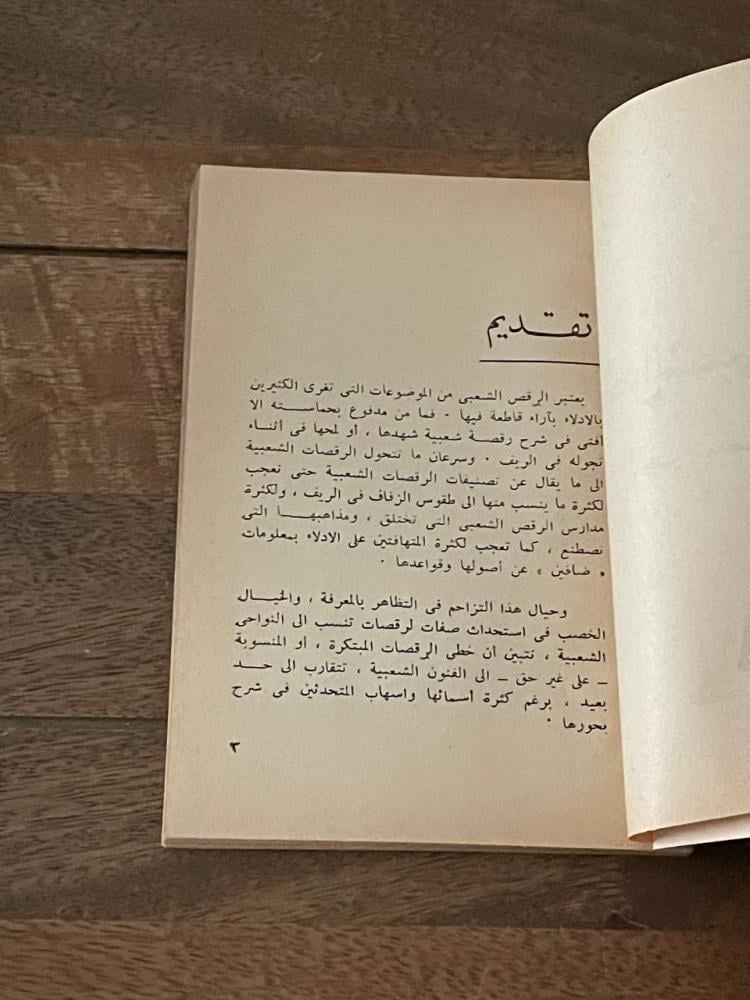 تقديم
يعتبر الرقص الشعبى من الموضوعات التى تغرى الكثيرين
بالادلاء بآراء قاطعة فيها · فما من مدفوع بحماسته الا
أفتى فى شرح رقصة شعبية شهدها ، أو لمحها فى أثناء
تجوله فى الريف · وسرعان ما تتحول الرقصات الشعبية
الى ما يقال عن تصنيفات الرقصات الشعبية حتى نعجب
لكثرة ما ينسب منها الى طقوس الزفاف فى الريف ، ولكثرة
مدارس الرقص الشعبى التى تختلق ، ومذاهبها التى
تصطنع ، كما تعجب لكثرة المتهافتين على الادلاء بمعلومات
« ضافين » عن أصولها وقواعدها ·
وحيال هذا التزاحم فى التظاهر بالمعرفة ، والخيال
الخصب فى استحداث صفات لرقصات تنسب الى النواحى
الشعبية ، نتبين أن خطى الرقصات المبتكرة ، أو المنسوبة
– على غير حق – الى الفنون الشعبية ، تتقارب الى حد
بعيد ، برغم كثرة أسمائها واسهاب المتحدثين فى شرح
بحورها ·
٣